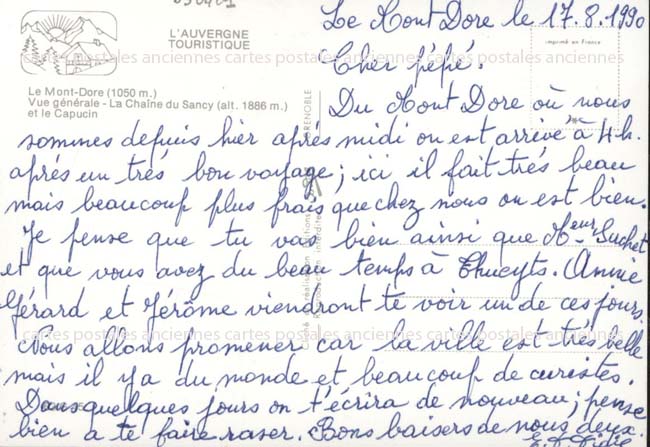 Le Mont Dore le 17.8.1990
L'AUVERGNE
TOURISTIQUE
imprimé en France
cartes postales anciennes cartes postales anciennes cartes postales anciennes
Cher pépé.
Le Mont-Dore (1050 m.)
Vue générale - La Chaîne du Sancy (alt. 1886 m.)
et le Capucin
GRENOBLE
Du Mont Dore où nous
sommes depuis hier après midi on est arrivé à 4h.
après un très bon voyage; ici il fait très beau
mais beaucoup plus frais que chez nous on est bien.
Je pense que tu vas bien ainsi que Meur Suchet
et que vous avez du beau temps à Thueyts. Annie
Gérard et Jérôme viendront te voir un de ces jours.
cartes postales anciennes cartes postales anciennes cartes postales anciennes
Nous allons promener car la ville est très belle
mais il ya du monde et beaucoup de curistes.
Dans quelques jours on t'écrira de nouveau; pense
bien a te faire raser. Bons baisers de nous deux.